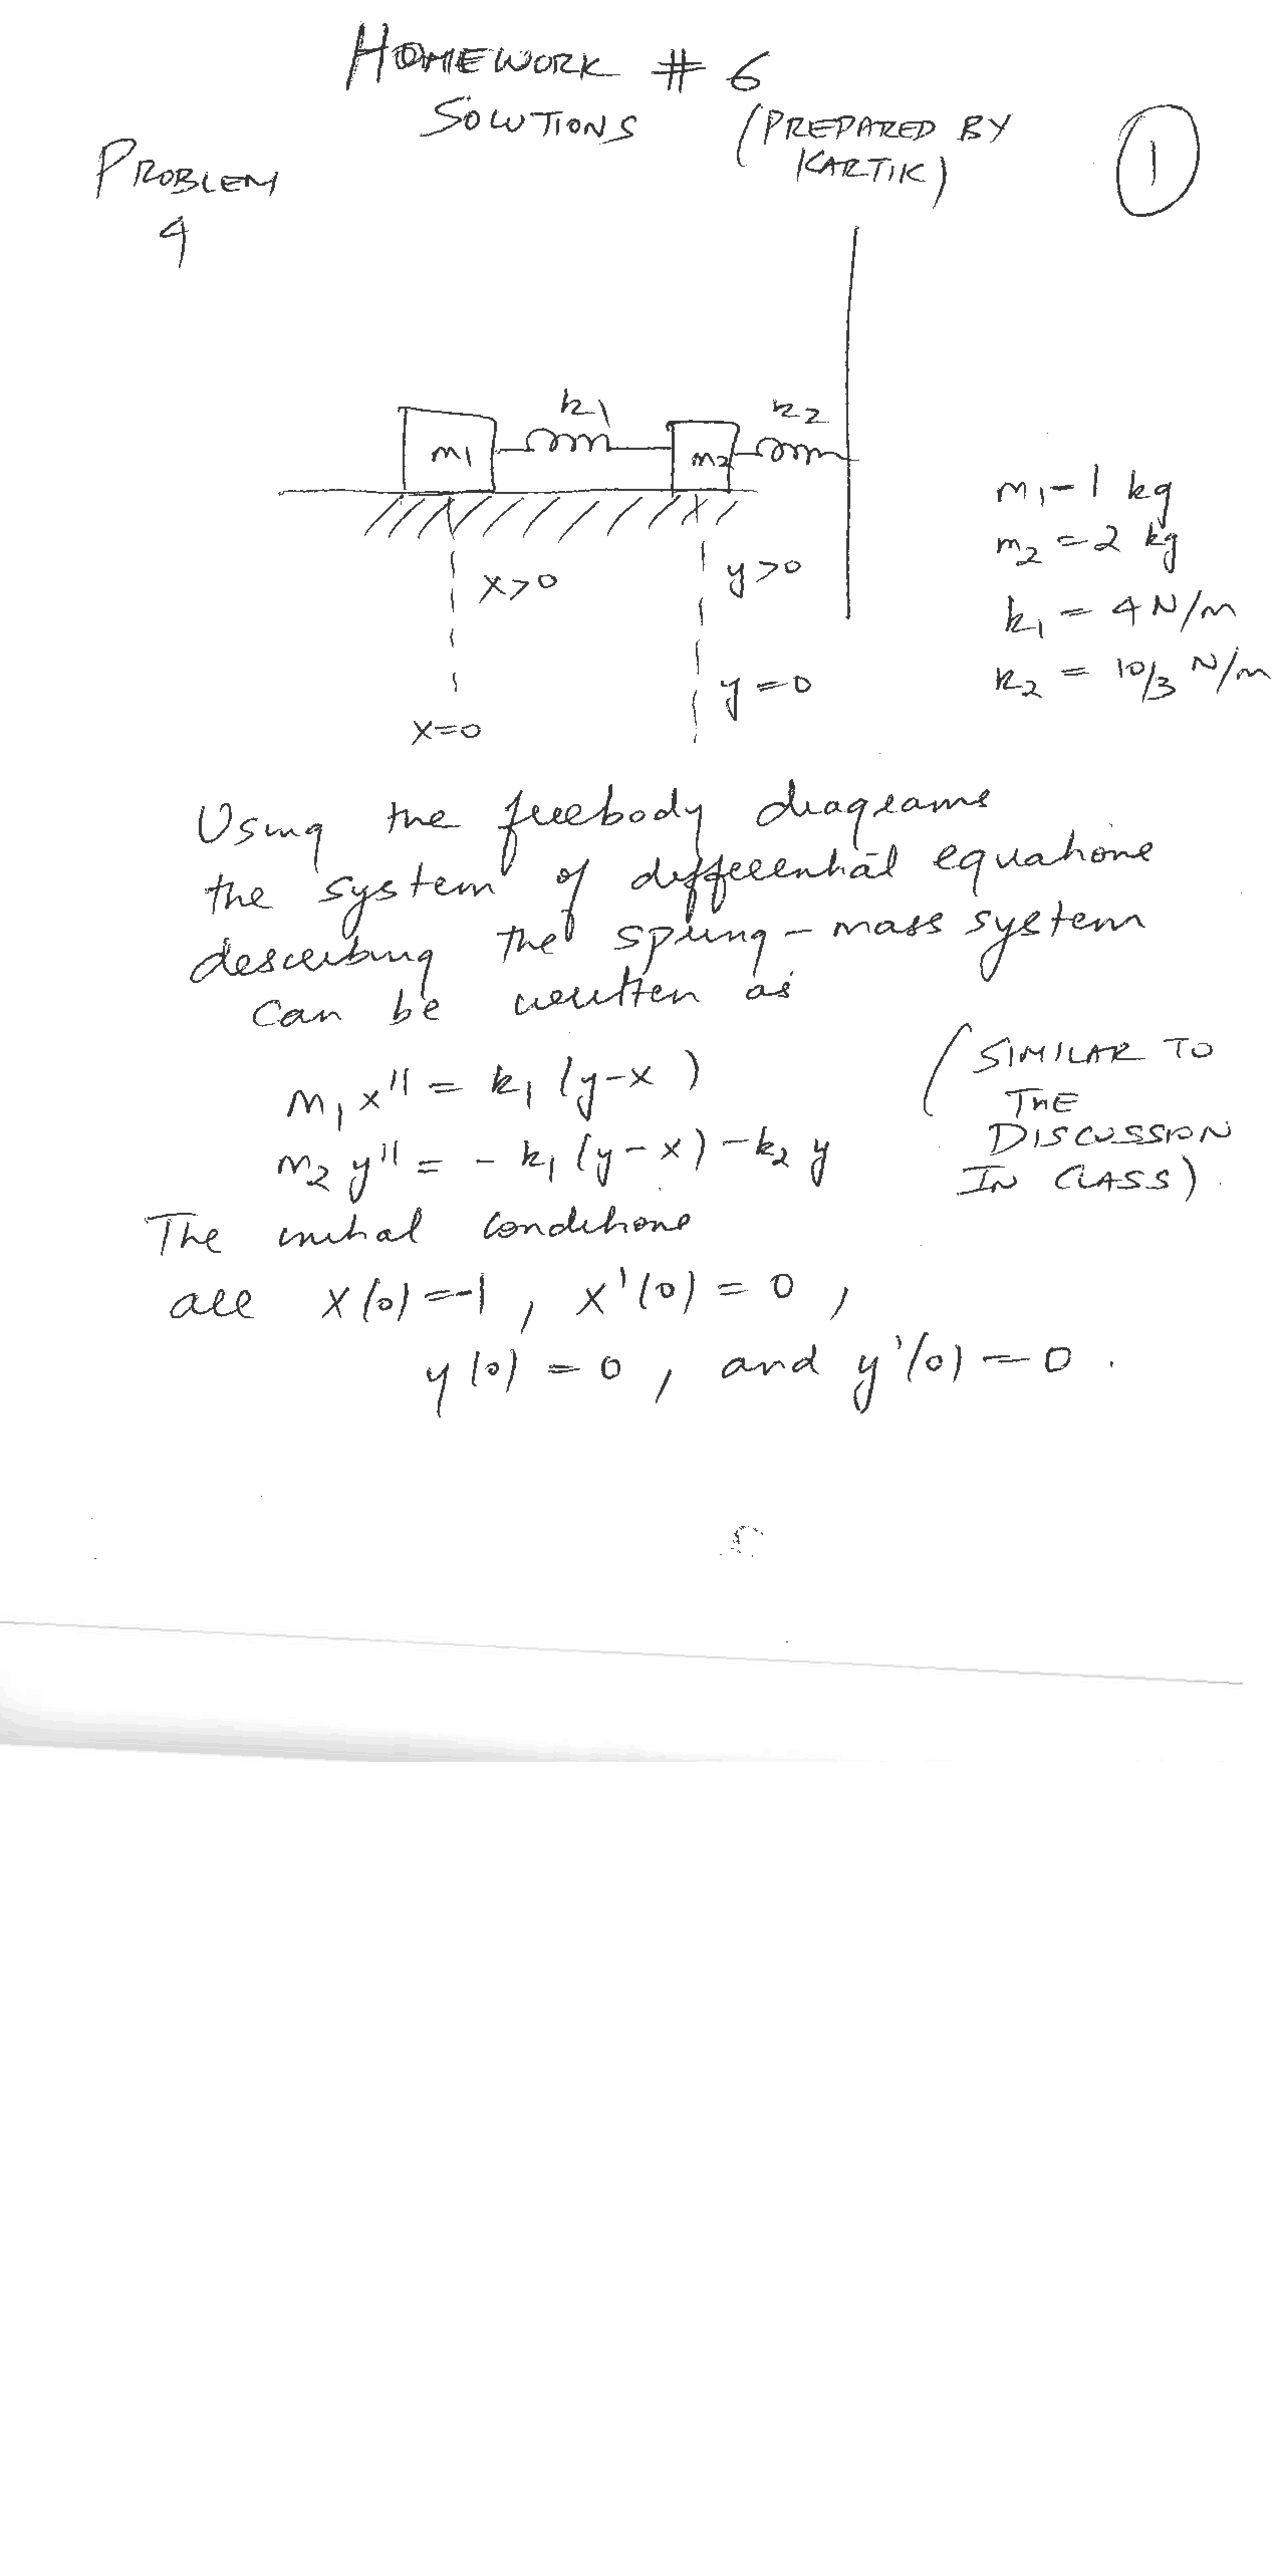 HOMEWORK # 6
SOLUTIONS (PREPARED BY
KARTIK)
1
PROBLEM
4
k1
k2
m1
m2
m1 = 1 kg
m2 = 2 kg
k1 = 4 N/m
k2 = 10/3 N/m
x>0
y>0
y=0
x=0
Using the freebody diagrams
the system of differential equations
describing the spring-mass system
can be written as
m1 x'' = k1 (y-x)
m2 y'' = - k1 (y-x) - k2 y
(SIMILAR TO
THE
DISCUSSION
IN CLASS).
The initial conditions
are x(0) = -1, x'(0) = 0,
y(0) = 0, and y'(0) = 0.